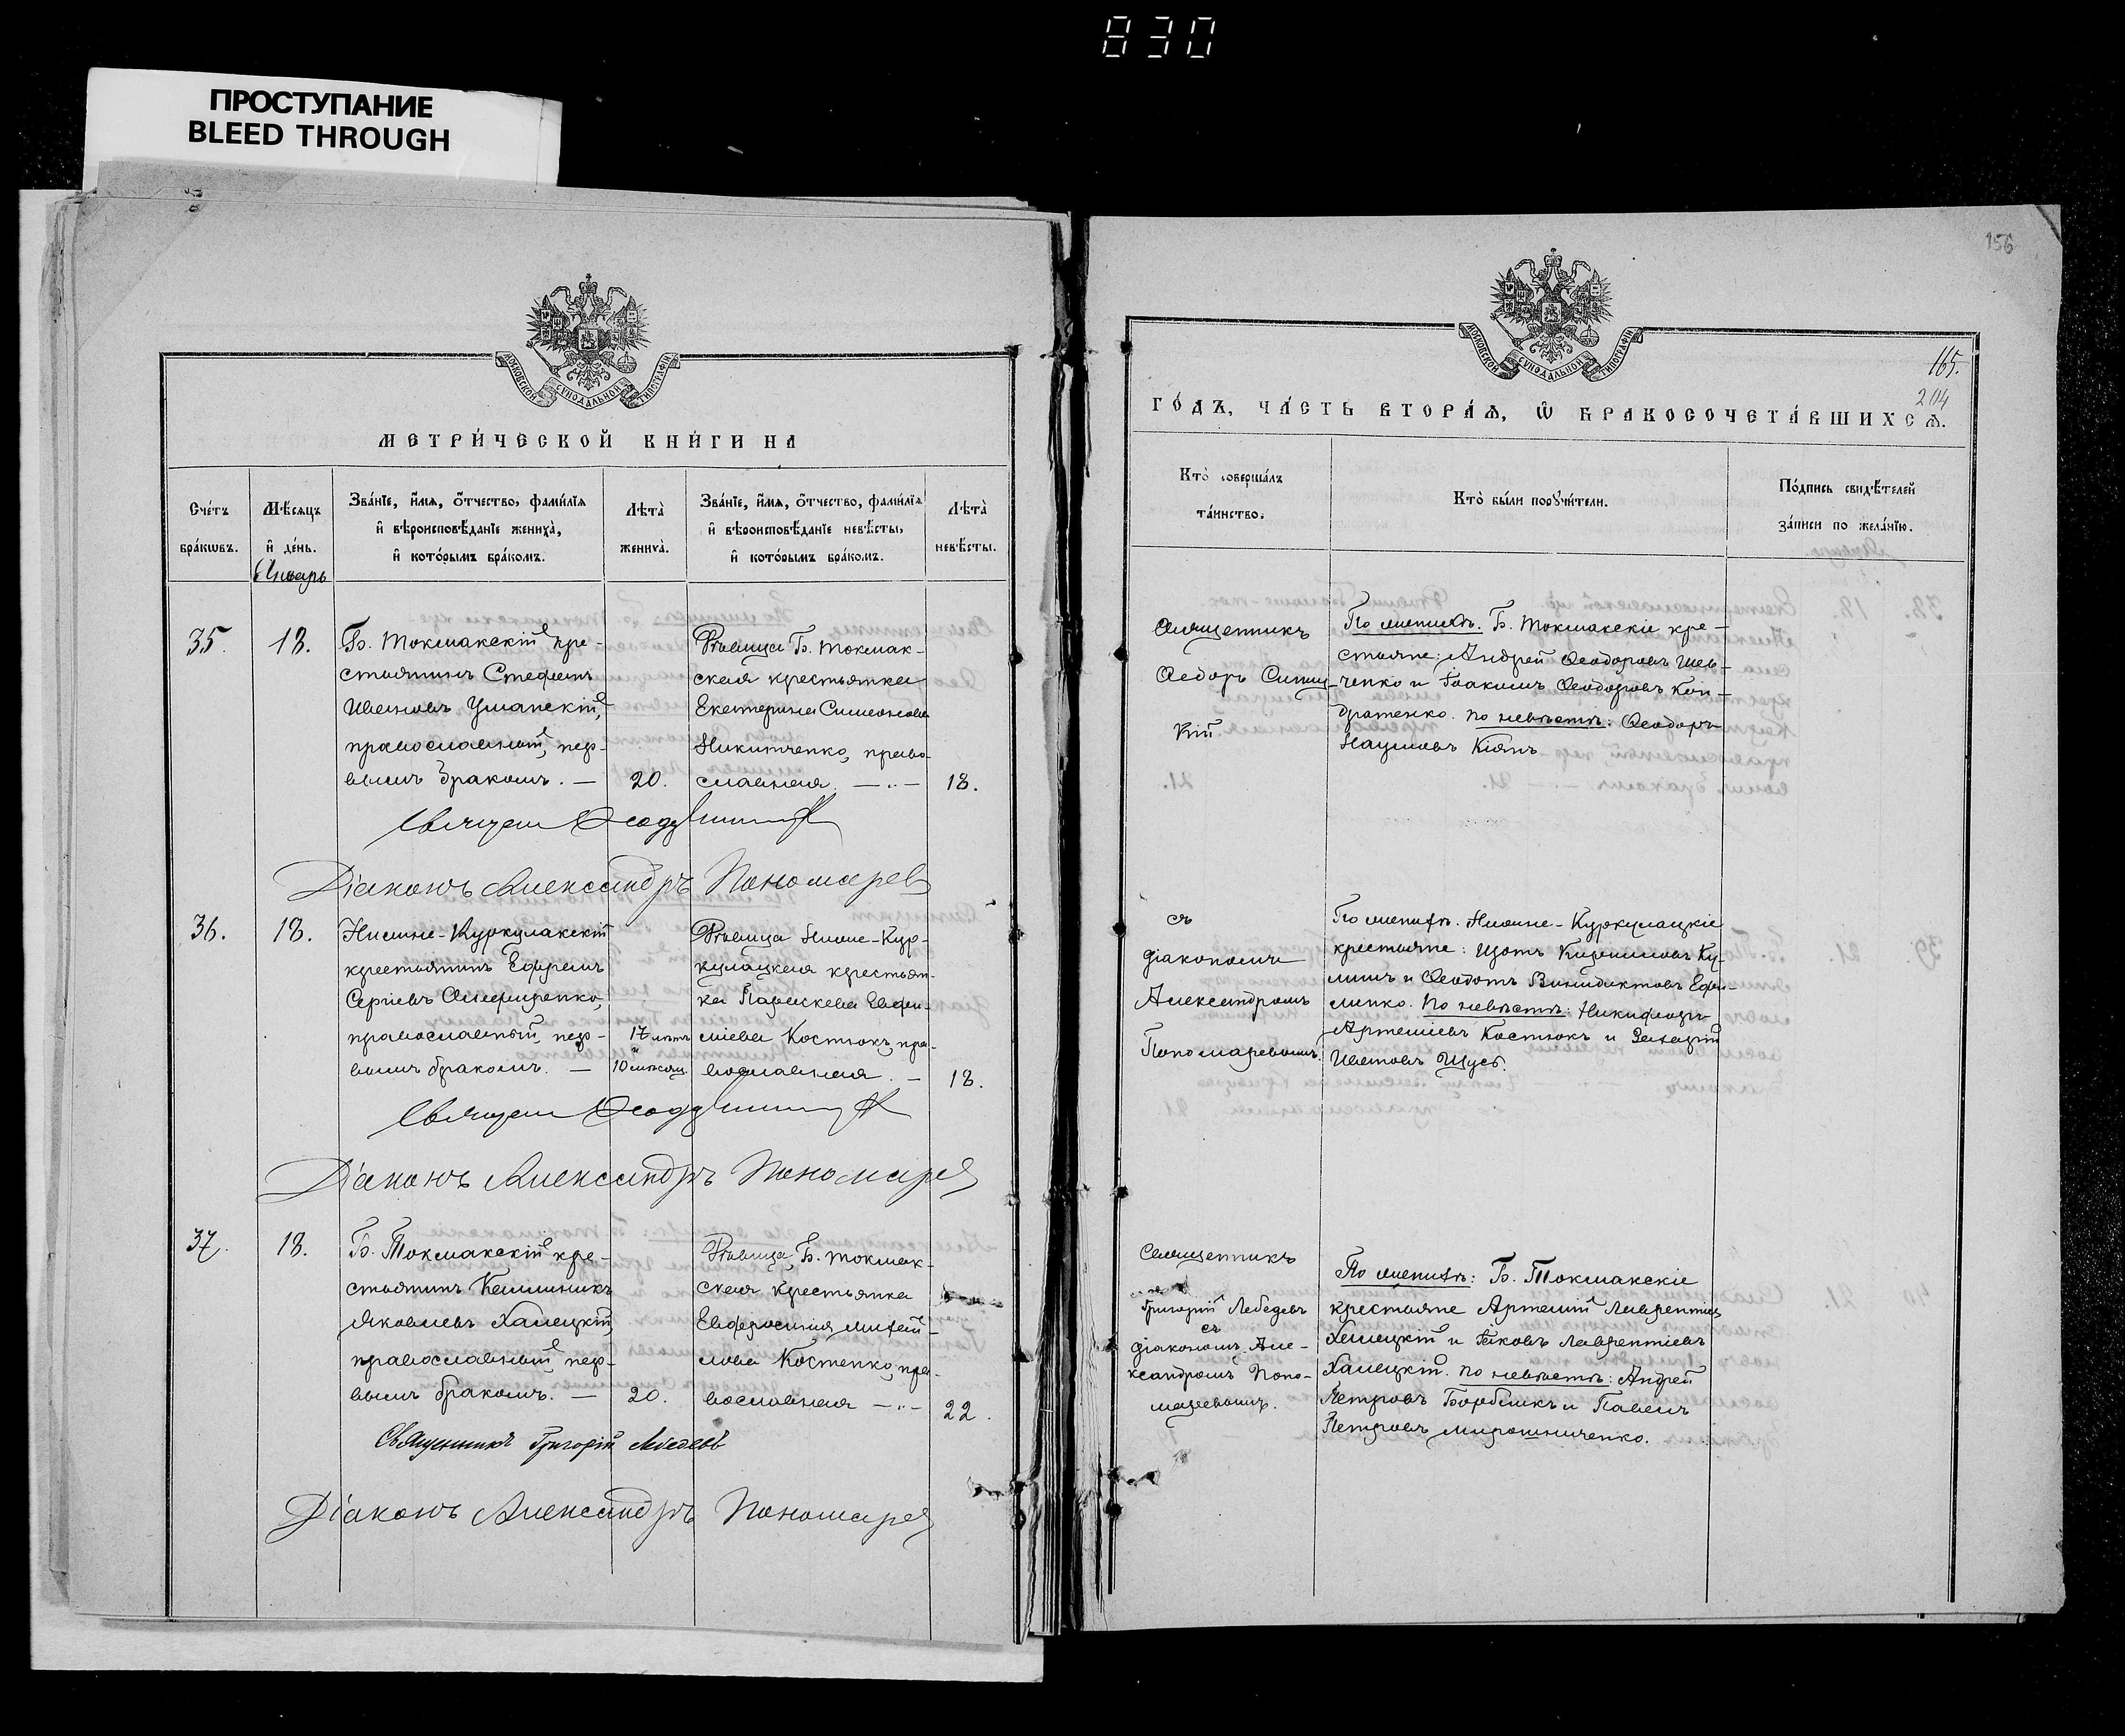 830
ПРОСТУПАНИЕ
BLEED THROUGH
156
МОСКОВСКОЙ СУНОДАЛЬНОЙ ТИПОГРАФІИ
МЕТРИ́ЧЕСКОЙ КНИ́ГИ НА
Сче́тъ бра́кѡвъ.
Мѣ́сяцъ и҆ де́нь.
Зва́нїе, и҆́мѧ, ѻ҆́тчество, фами́лїѧ и҆ вѣроисповѣ́данїе жениха̀, и҆ кото́рымъ бра́комъ.
Лѣ́та жениха̀.
Зва́нїе, и҆́мѧ, ѻ҆́тчество, фами́лїѧ и҆ вѣроисповѣ́данїе невѣ́сты, и҆ кото́рымъ бра́комъ.
Лѣ́та невѣ́сты.
Январь
35. 18.
Б. Токмакскій кре-
стьянинъ Стефанъ
Ивановъ Уманскій,
православный, пер-
вымъ бракомъ. — 20.
Дѣвица Б. Токмак-
ская крестьянка
Екатерина Симеонова
Никитченко, право-
славная. — 18.
Священ Ѳеод
Діаконъ Александръ Пономарев
36. 18.
Нижне-Куркулакскій
крестьянинъ Ефремъ
Сергіевъ
православный, пер-
вымъ бракомъ. —
17 лѣтъ
и
10 мѣсяц.
Дѣвица Нижне-Кур-
кулацкая крестьян-
ка Параскева Евфи-
міева Костюкъ, пра-
вославная. — 18.
Священ Ѳеод
Діаконъ Александръ Пономарев
37. 18.
Б. Токмакскій кре-
стьянинъ Каллиникъ
Яковлевъ Халецкій,
православный, пер-
вымъ бракомъ. — 20.
Дѣвица, Б. Токмак-
ская крестьянка
Евфросинія Матѳей-
лова Костенко, пра-
вославная — 22.
Священникъ Григорій Лебедевъ
Діаконъ Александръ Пономарев
МОСКОВСКОЙ СУНОДАЛЬНОЙ ТИПОГРАФІИ
165.
204
ГО́ДЪ, ЧА́СТЬ ВТОРА́Ѧ, Ѡ҆ БРАКОСОЧЕТА́ВШИХСѦ.
Кто̀ соверша́лъ та́инство.
Кто̀ бы́ли порꙋчи́тели.
По́дпись свидѣ́телей за́писи по жела́нїю.
Священникъ
Ѳедоръ Синиц-
кій
По женихѣ. Б. Токмакскіе кре-
стьяне: Андрей Ѳеодоровъ Шев-
ченко и Іоакимъ Ѳеодоровъ Кон-
дратенко. По невѣстѣ: Ѳеодоръ
Наумовъ Кіянъ.
съ
діакономъ
Александромъ
Пономаревымъ.
По женихѣ. Нижне-Куркулацкіе
крестьяне: Изотъ Кирилловъ Ку-
лишъ и Ѳеодотъ Венидиктовъ Ефи-
менко. По невѣстѣ: Никифоръ
Артеміевъ Костюкъ и
Ивановъ Щусь.
Священникъ
Григорій Лебедевъ
съ
діакономъ Але-
ксандромъ Поно-
маревымъ.
По женихѣ: Б. Токмакскіе
крестьяне Артемій Лаврентіев
Халецкій и Яковъ Лаврентіевъ
Халецкій. По невѣстѣ: Андрей
Петровъ и Павелъ
Петровъ Мирошниченко.